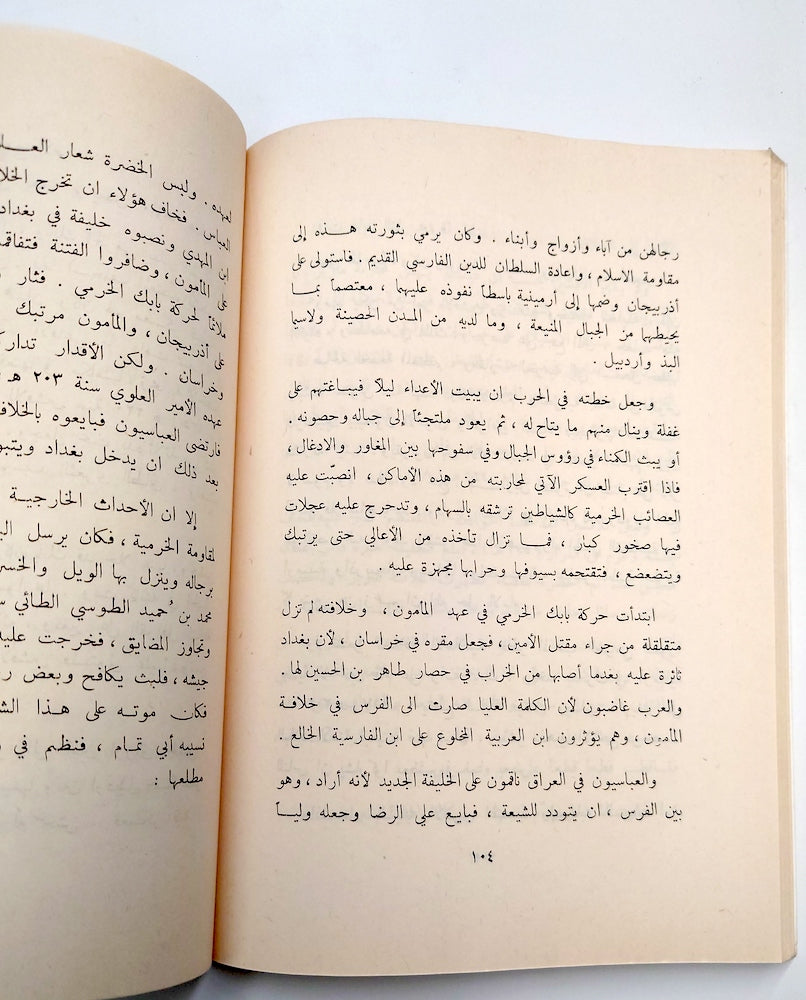 رجالهن من آباء وأزواج وأبناء . وكان يرمي بثورته هـذه إلى
مقاومة الاسلام ، واعادة السلطان للدين الفارسي القديم . فاستولى على
أذربيجان وضمها إلى أرمينية باسطاً نفوذه عليهما ، معتصماً بما
يحيطهما من الجبال المنيعة ، وما لديه من المدن الحصينة ولاسيما
البذ وأردبيل .
وجعل خطته في الحرب ان يبيت الأعداء ليلاً فيباغتهم على
غفلة وينال منهم ما يتاح له ، ثم يعود ملتجئاً إلى جباله وحصونه .
أو يبث الكمناء في رؤوس الجبال وفي سفوحها بين المغاور والادغال ،
فاذا اقترب العسكر الآتي لمحاربته من هذه الأماكن ، انصبّت عليه
العصائب الخرمية كالشياطين ترشقه بالسهام ، وتدحرج عليه عجلات
فيها صخور كبار ، فما تزال تأخذه من الأعالي حتى يرتبك
ويتضعضع ، فتقتحمه بسيوفها وحرابها مجهزة عليه .
ابتدأت حركة بابك الخرمي في عهد المأمون ، وخلافته لم تزل
متقلقلة من جراء مقتل الأمين ، فجعل مقره في خراسان ، لأن بغداد
ثائرة عليه بعدما أصابها من الخراب في حصار طاهر بن الحسين لها .
والعرب غاضبون لأن الكلمة العليا صارت الى الفرس في خلافة
المأمون ، وهم يؤثرون ابن العربية المخلوع على ابن الفارسية الخالع .
والعباسيون في العراق ناقمون على الخليفة الجديد لأنه أراد ، وهو
بين الفرس ، ان يتودد للشيعة ، فبايع علي الرضا وجعله وليـاً
١٠٤
لعهده . ولبس الخضرة شعار
العباس . فخاف هؤلاء ان تخرج
ابن المهدي ونصبوه خليفة في بغداد
على المأمون ، وضافروا الفتنة
ملائماً لحركة بابك الخرمي . فثار
على أذربيجان ، والمأمون مرتبك
وخراسان . ولكن الأقدار
عهده الأمير العلوي سنة ٢٠٣ هـ
فارتضى العباسيون فبايعوه
بعد ذلك ان يدخل بغداد
إلا ان الأحداث الخارجية
لمقاومة الخرمية ، فكان يرسل
برجاله وينزل بها الويل
محمد بن حُميد الطوسي الطائي
وتجاوز المضايق ، فخرجت
جيشه ، فلبث يكافح وبعض
فكان موته على هذا
نسيبه أبي تمام ، فنظم في
مطلعها :